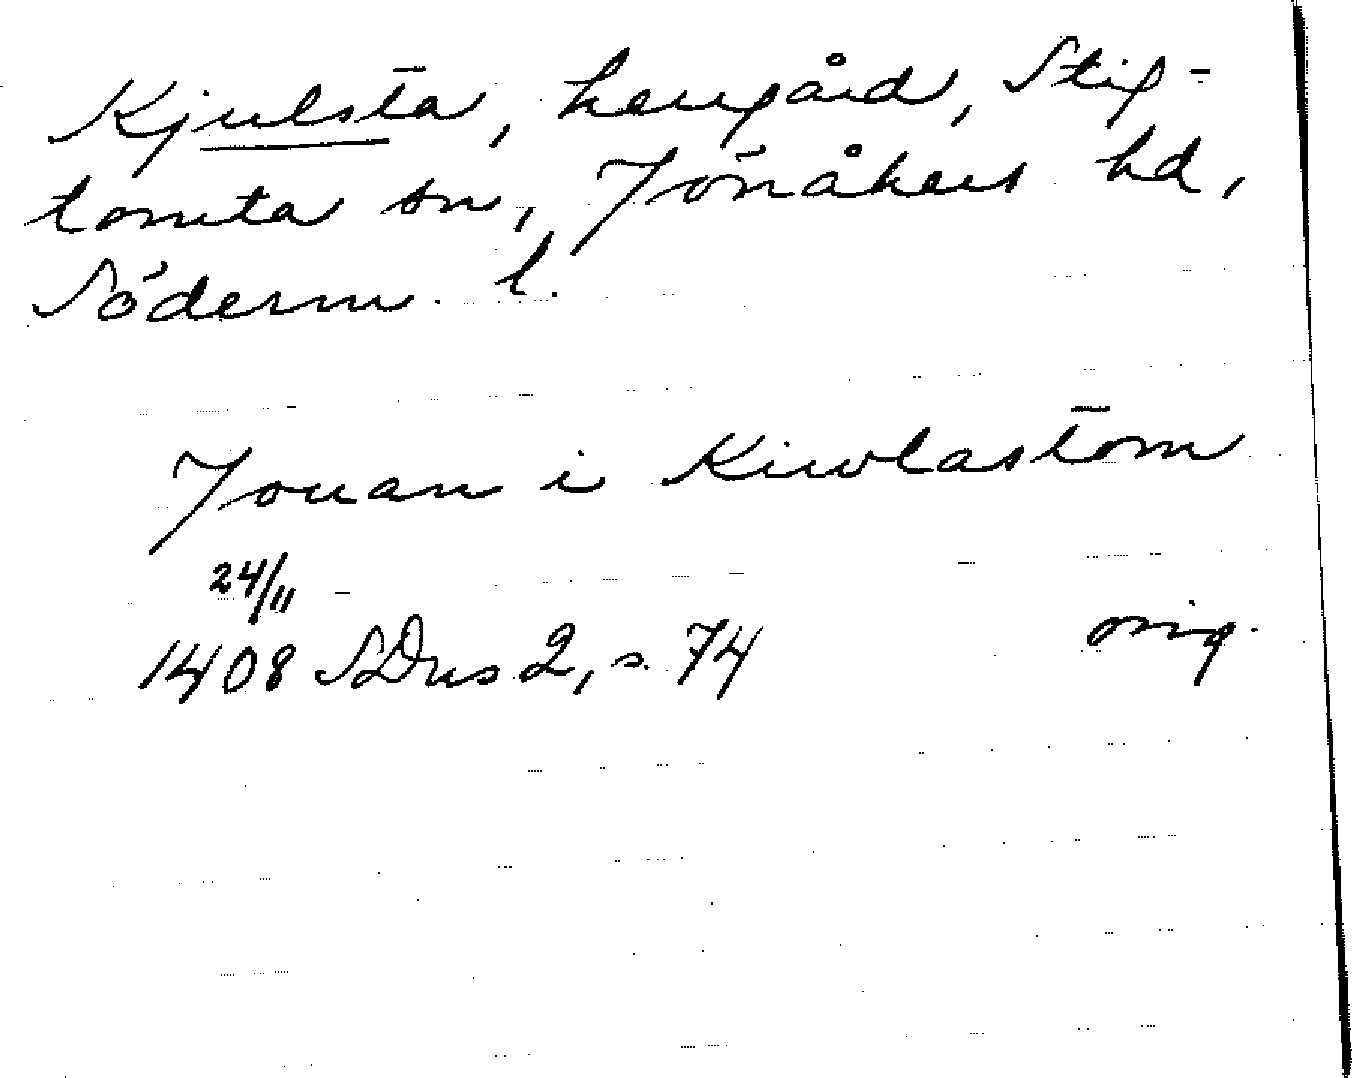 Kjulsta, herrgård, Stig-
tomta sn, Jönåkers hd,
Söderm. l.
Jouan i Kiwlastom
24/11
1408 SDns 2, s. 74 orig.